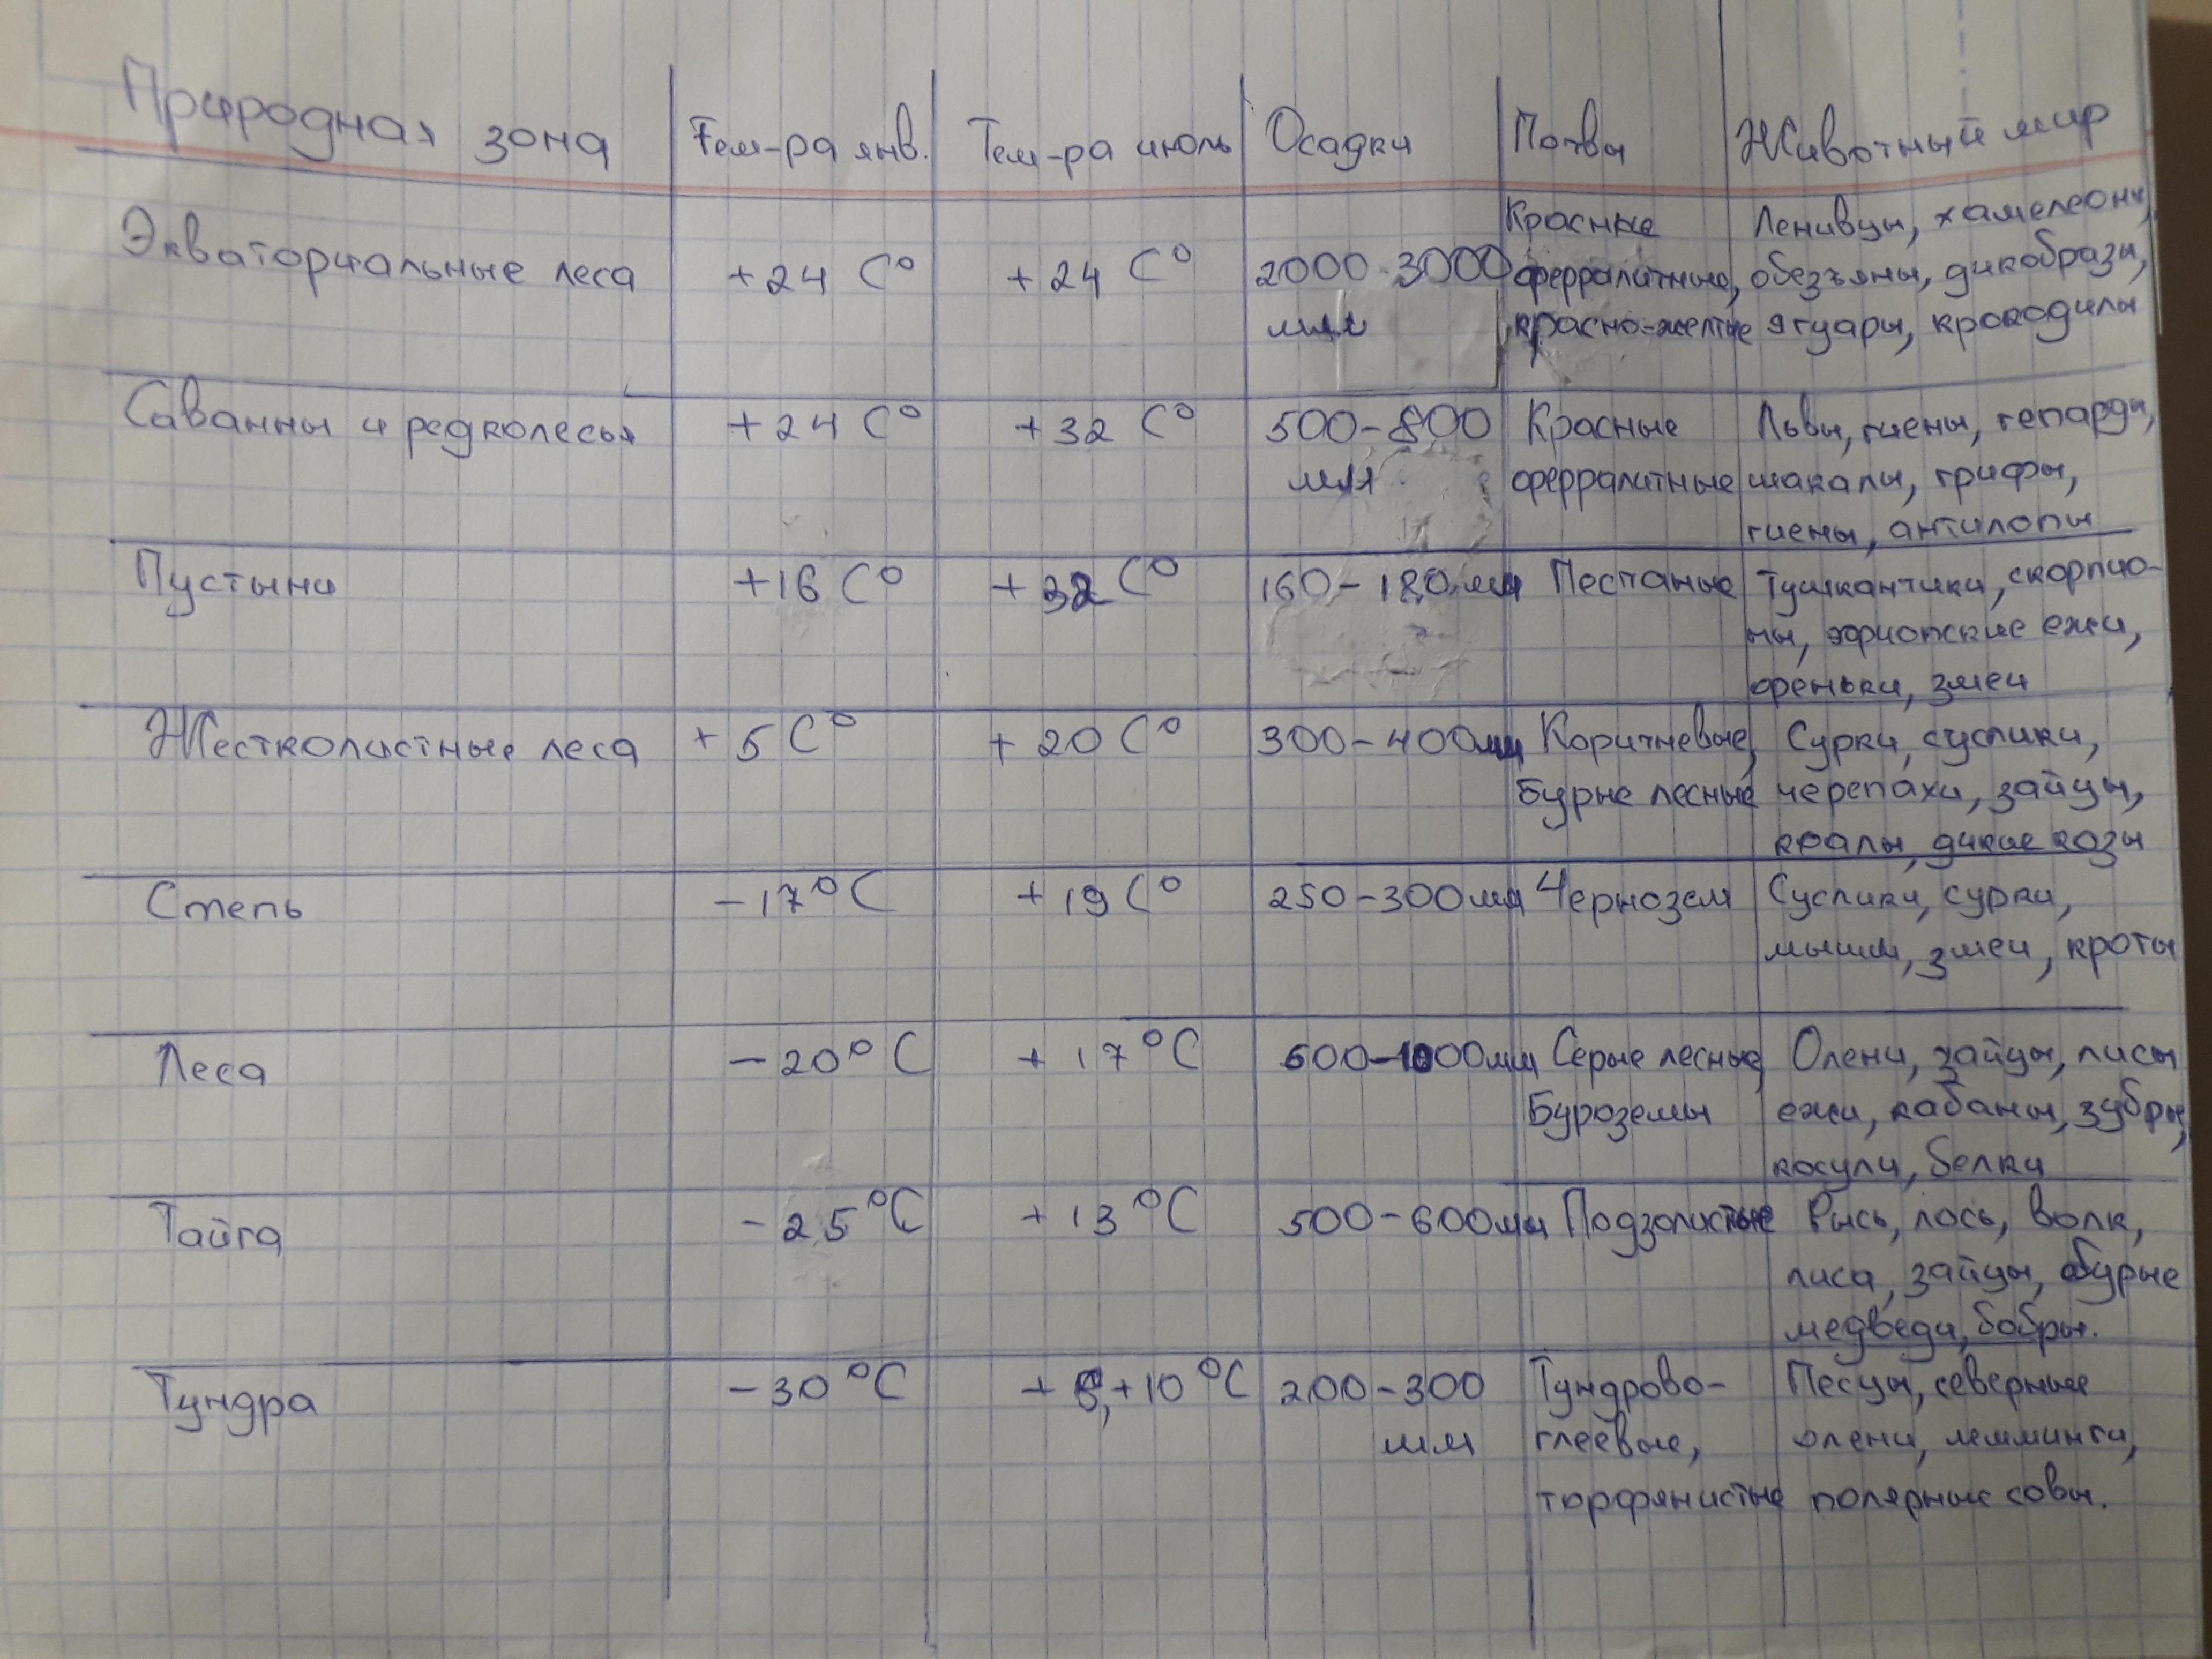 Природная зона Тем-ра янв. Тем-ра июль Осадки Почвы Животный мир
Экваториальные леса +24 С° +24 С° 2000-3000 Красные Ленивцы, хамелеоны,
мм ферралитные, обезъяны, дикобразы,
красно-желтые ягуары, крокодилы
Саванны и редколесья +24 С° +32 С° 500-800 Красные Львы, гиены, гепарды,
мм ферралитные шакалы, грифы,
гиены, антилопы
Пустыни +16 С° +32 С° 160-180мм Песчаные Тушканчики, скорпио-
ны, эфиопские ежи,
феньки, змеи
Жестколистные леса +5 С° +20 С° 300-400мм Коричневые, Сурки, суслики,
Бурые лесные черепахи, зайцы,
дикие козы
Степь -17°С +19 С° 250-300мм Чернозем Суслики, сурки,
мыши, змеи, кроты
Леса -20°С +17°С 600-1000мм Серые лесные, Олени, зайцы, лисы
Буроземы ежи, кабаны, зубры,
косули, белки
Тайга -25°С +13°С 500-600мм Подзолистые Рысь, лось, волк,
лиса, зайцы, бурые
медведи, бобры.
Тундра -30°С +10°С 200-300 Тундрово- Песцы, северные
мм глеевые, олени, лемминги,
торфянистые полярные совы.